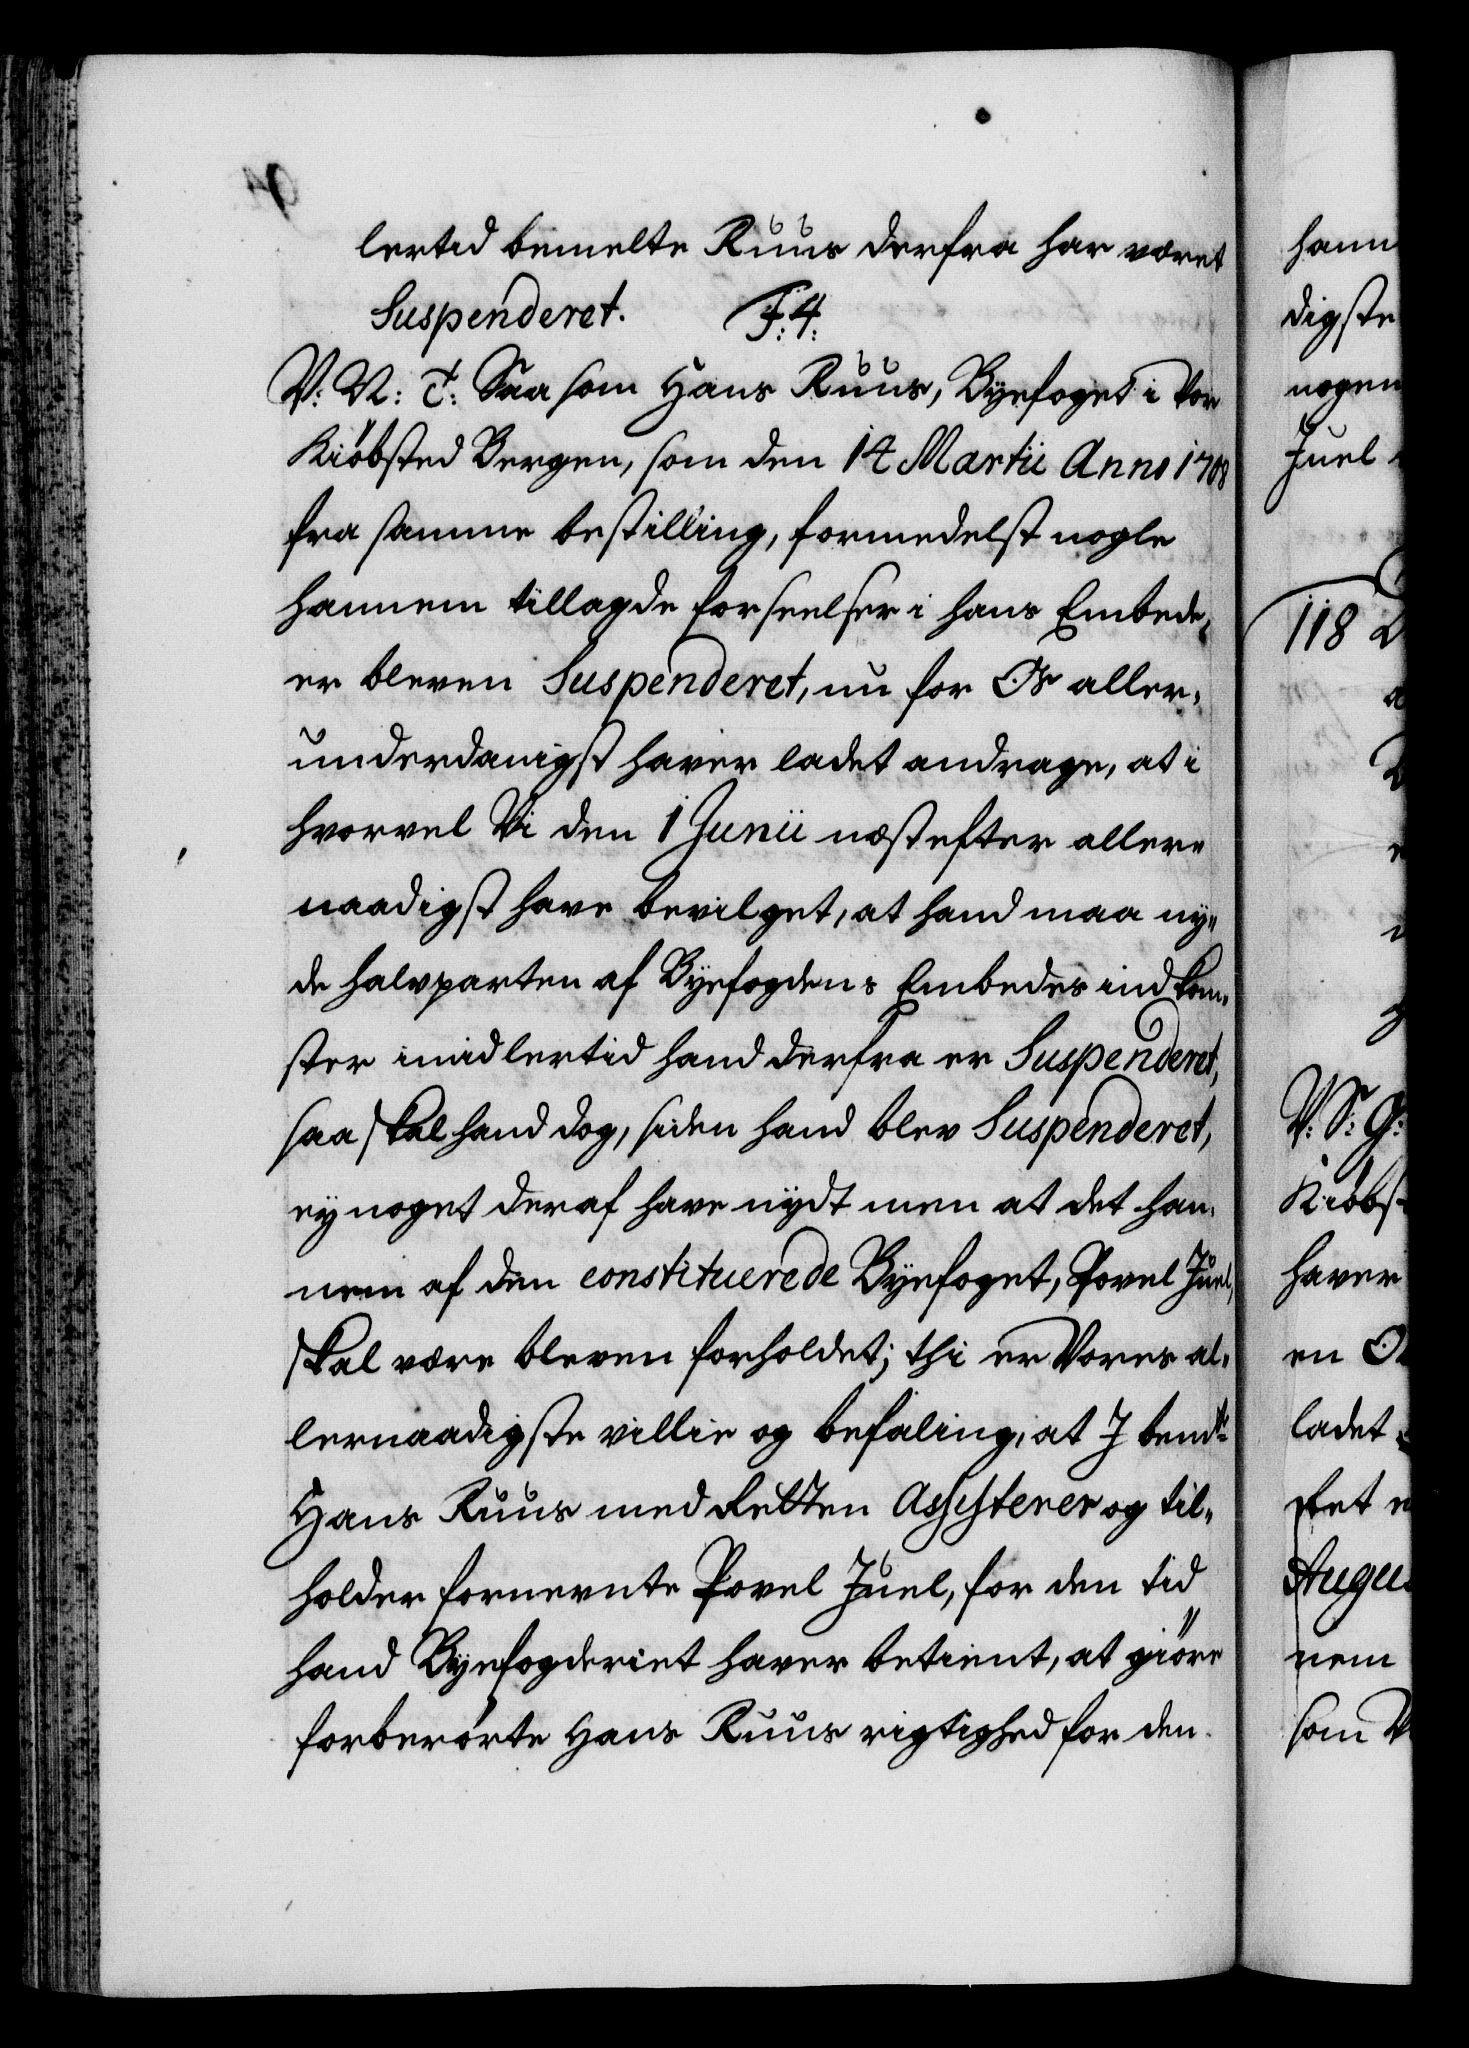 lertid bemelte Ruus derfra har været
Suspenderet. F: 4:
V: V: T: Saasom Hans Ruus, Byefoget i Vor
Kiøbsted Bergen, som den 14 Martii Anno 1708
fra samme bestilling, formedelst nogle
hannem tillagde forseelser i hans Embede,
er bleven Suspenderet, nu for Os aller-
underdanigst haver ladet andrage, at i
hvorvel Vi den 1 Junii næst efter aller-
naadigst have bevilget, at hand maa ny-
de halvparten af Byefogdens Embedes indkom-
ster imidlertid hand derfra er Suspenderet,
saa skal hand dog, siden hand blev Suspenderet,
ey noget deraf have nydt men at det han-
nem af den constituerede Byefoget, Povel Juel,
skal være bleven forholdet; thi er Vores al-
lernaadigste villie og befaling, at I bemte
Hans Ruus med Retten assisterer og til-
holder fornevnte Povel Juel, for den tid
hand Byefogderiet haver betient, at giøre
forberørte Hans Ruus rigtighed for den
hann
digste
nogen
Juel
118
V: S: G:
Kiøbst
haver
en
ladet
Stet
Augus
nem
som